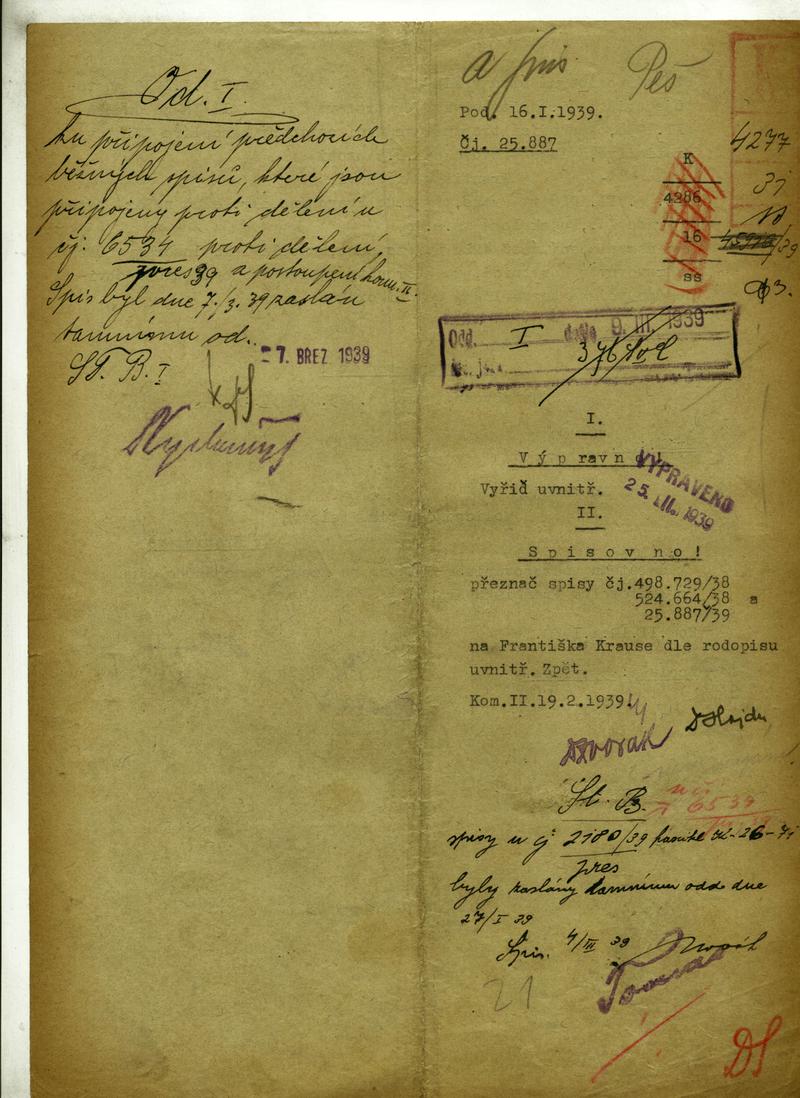 Od. I.
ku připojení předchozích
běžných spisů, které jsou
připojeny proti dělení u
čj. 6534 proti dělení,
pres 39 a postoupení kom. II.
Spis byl dne 7./3. 39 zaslán
tamnímu od.
ST. B. I
- 7. BŘEZ 1939
a spis Peš
Pod. 16.I.1939.
Čj. 25.887
K
4286
16
ss
4277
31
/39
Odd. I došlo 9. III. 1939
376
I.
Výpravně!
Vyřiď uvnitř.
VYPRAVENO
25. III. 1939
II.
Spisovno!
přeznač spisy čj.498.729/38
524.664/38 a
25.887/39
na Františka Krause dle rodopisu
uvnitř. Zpět.
Kom.II.19.2.1939.
Dvorak
St. B.
6539
spisy u čj 2180/39
pres
byly zaslány tamnímu odd. dne
27/I 39
Spis. 4/III 39
21